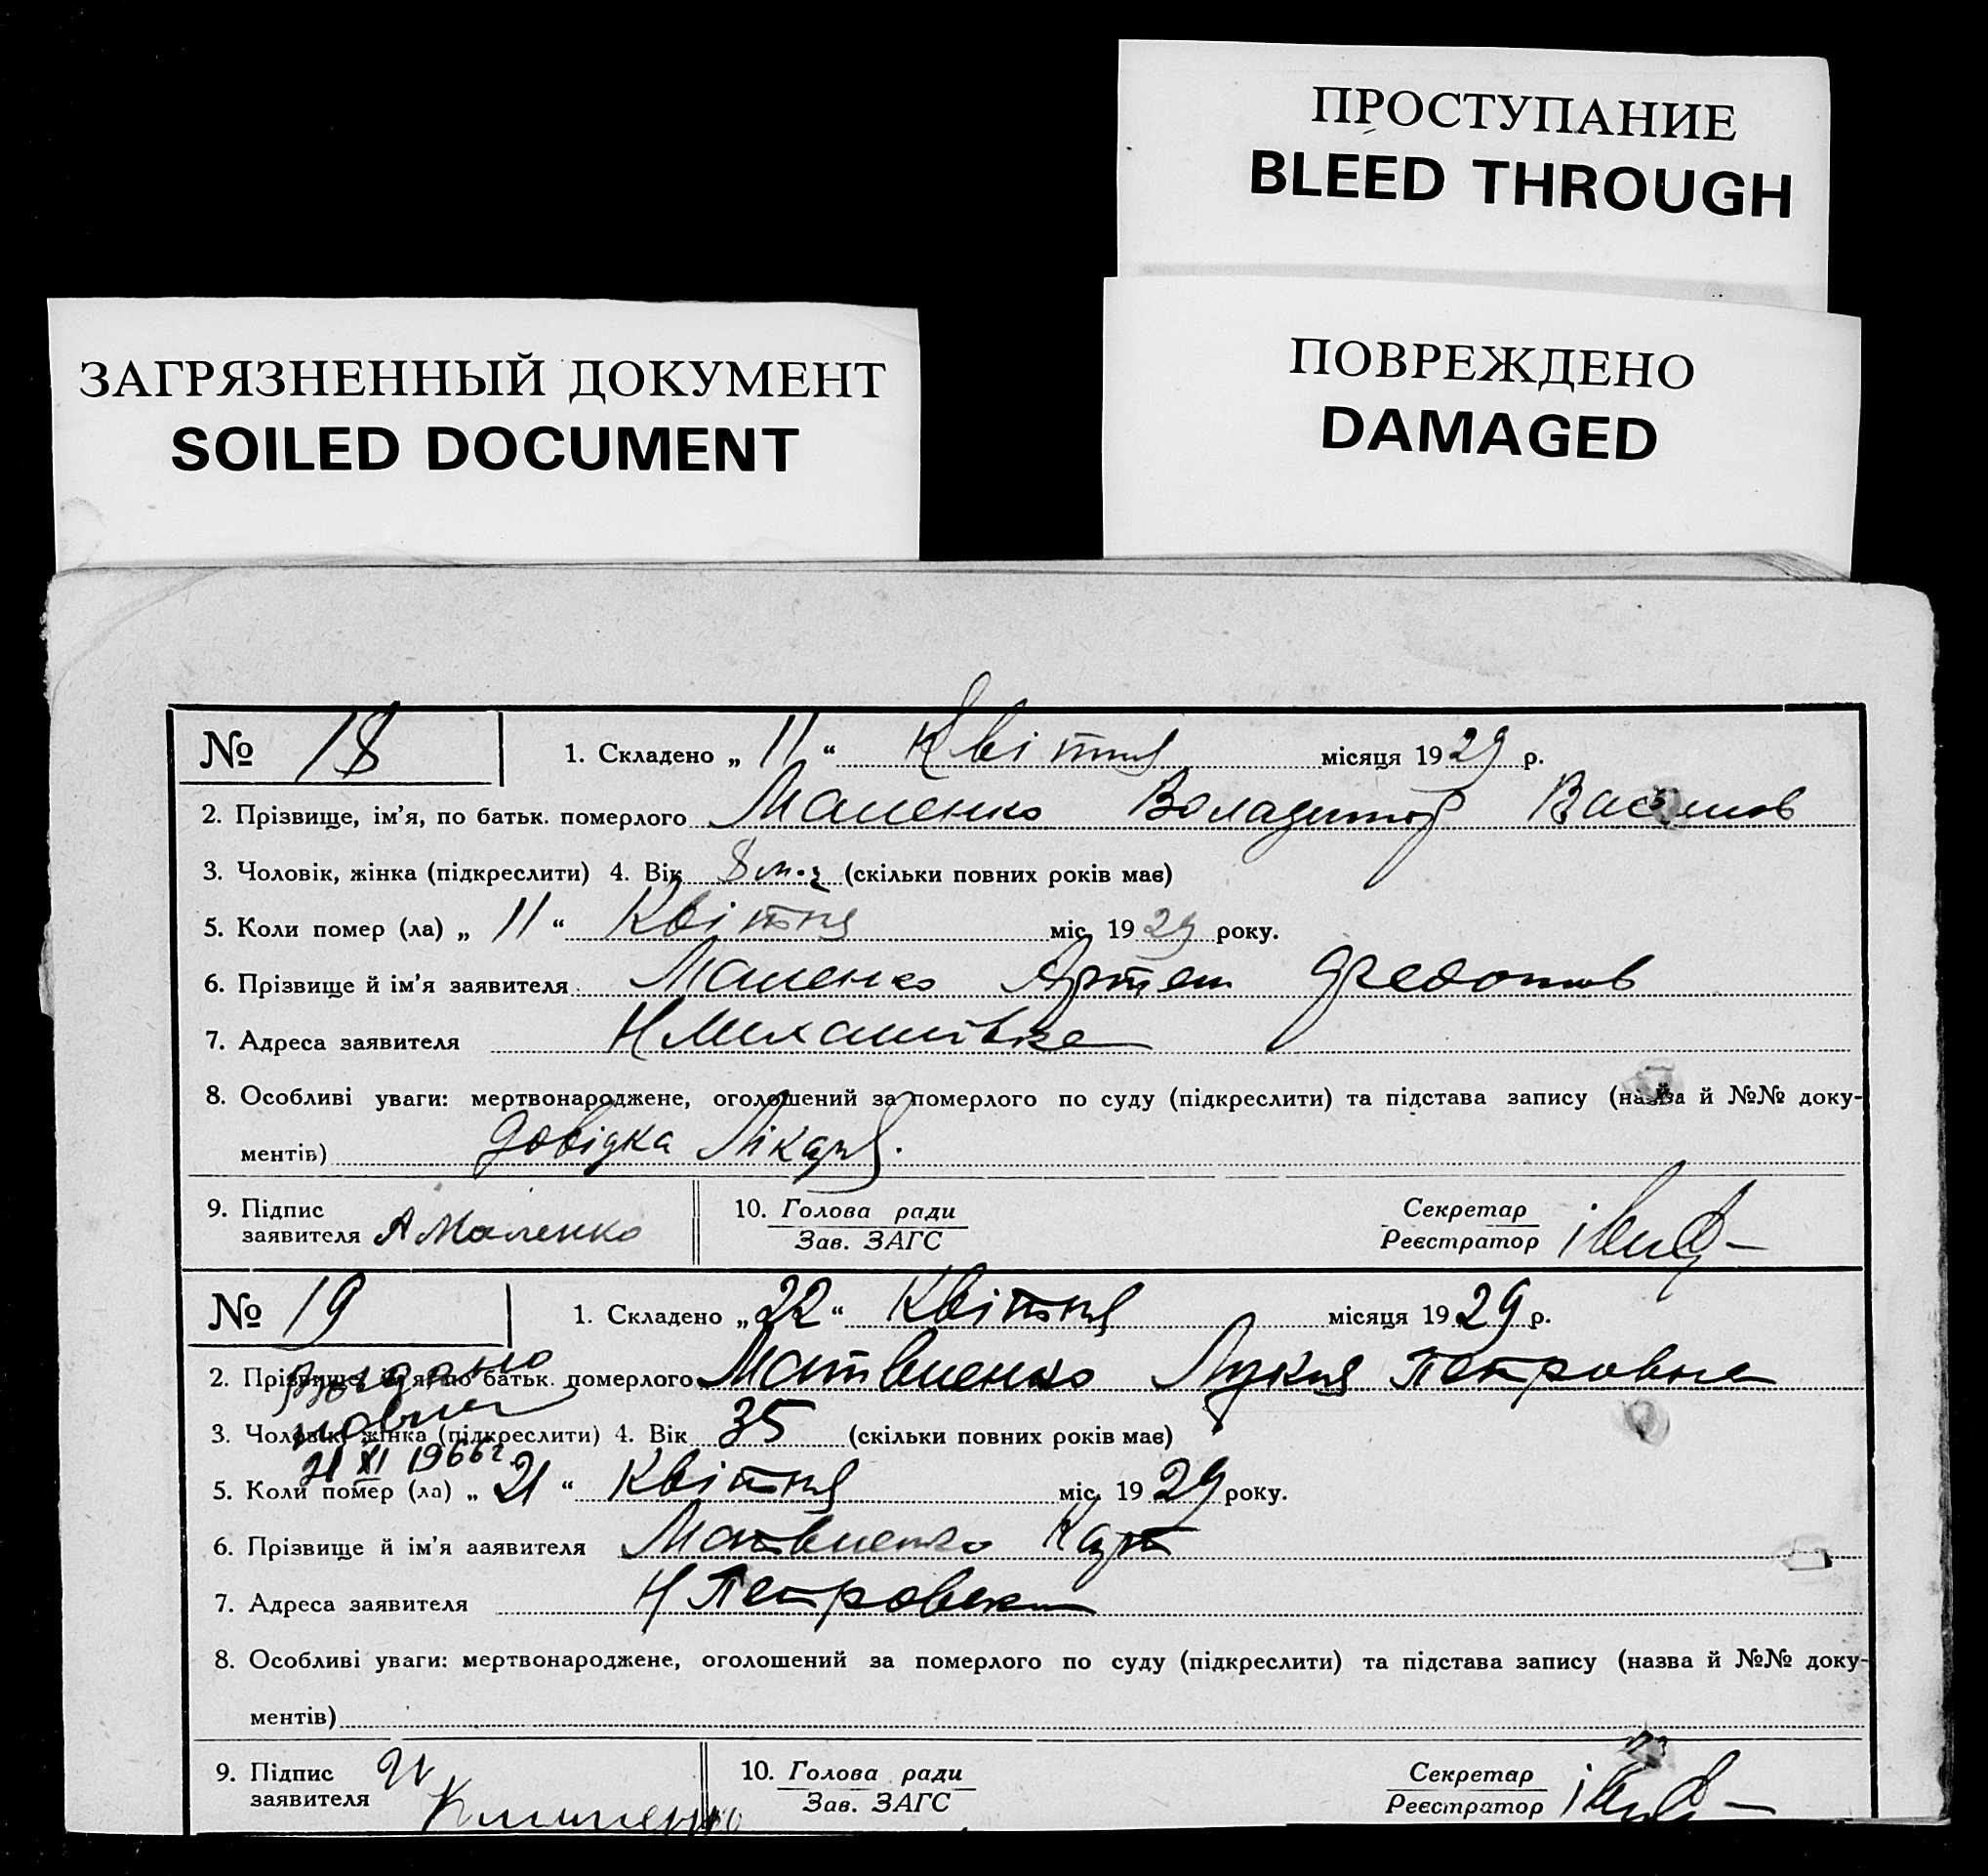 ПРОСТУПАНИЕ
BLEED THROUGH
ЗАГРЯЗНЕННЫЙ ДОКУМЕНТ
SOILED DOCUMENT
ПОВРЕЖДЕНО
DAMAGED
№ 18 1. Складено „ 11 “ Квітня місяця 1929 р.
2. Прізвище, ім’я, по батьк. померлого Маленко Володимир
3. Чоловік, жінка (підкреслити) 4. Вік 8 м-ц (скільки повних років має)
5. Коли помер (ла) „ 11 “ Квітня міс. 1929 року.
6. Прізвище й ім’я заявителя Маленко Артем Федотов
7. Адреса заявителя Н Михайлівка
8. Особливі уваги: мертвонароджене, оголошений за померлого по суду (підкреслити) та підстава запису (назва й №№ доку-
ментів) Довідка Лікаря.
9. Підпис
заявителя А Маленко
10. Голова ради
Зав. ЗАГС
Секретар
Реєстратор
№ 19 1. Складено „ 22 “ Квітня місяця 1929 р.
2. Прізвище, ім’я, по батьк. померлого Матвиенко Лукия Петровна
3. Чоловік, жінка (підкреслити) 4. Вік 35 (скільки повних років має)
21 XI 1966г.
5. Коли помер (ла) „ 21 “ Квітня міс. 1929 року.
6. Прізвище й ім’я заявителя Матвиенко
7. Адреса заявителя Н
8. Особливі уваги: мертвонароджене, оголошений за померлого по суду (підкреслити) та підстава запису (назва й №№ доку-
ментів)
9. Підпис
заявителя
10. Голова ради
Зав. ЗАГС
Секретар
Реєстратор